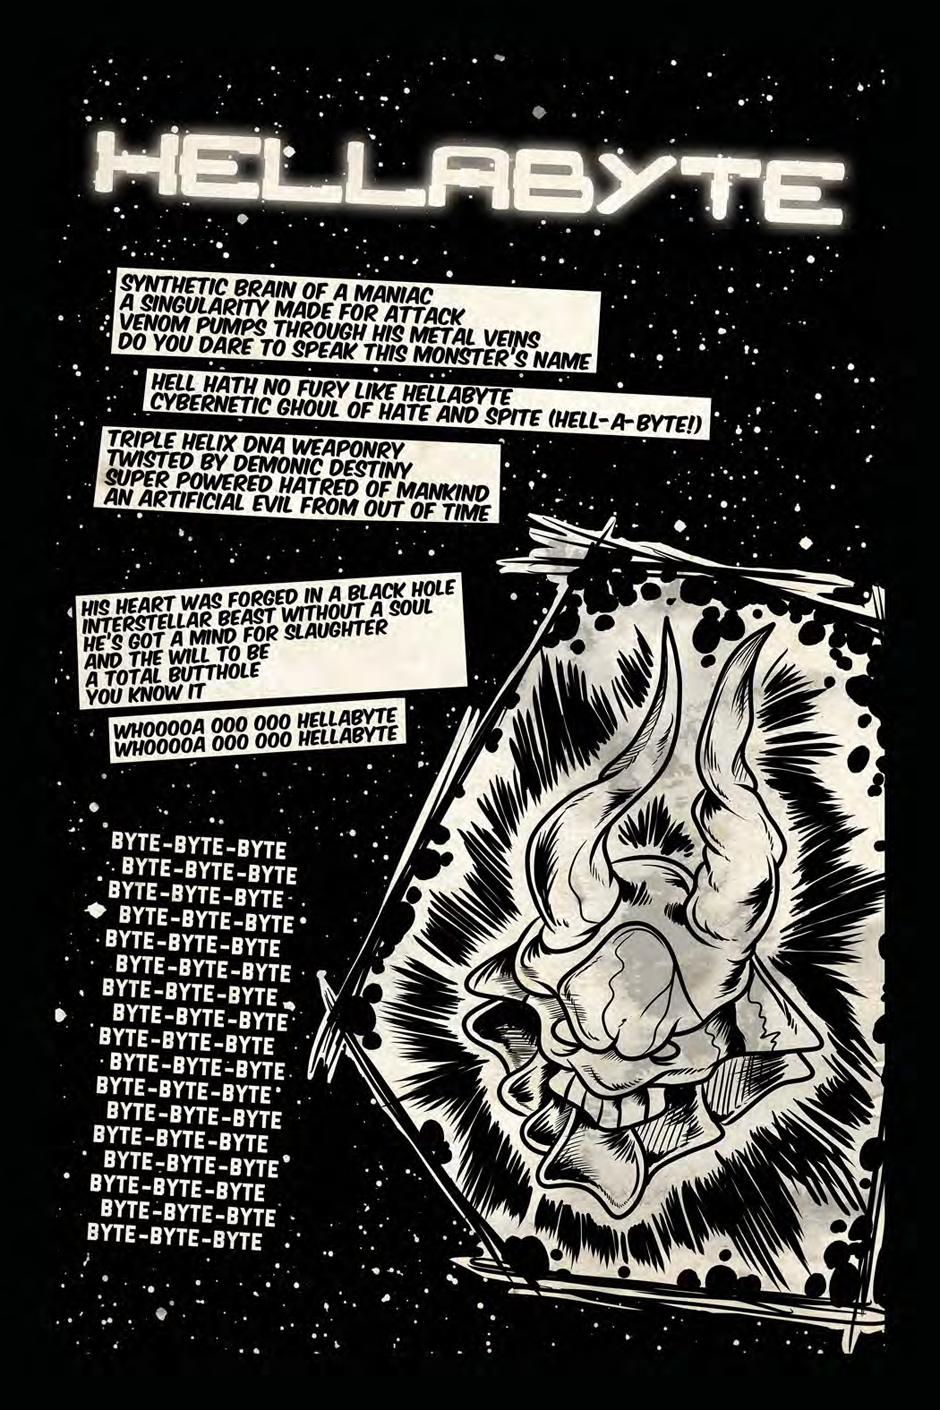 HELLABYTE
SYNTHETIC BRAIN OF A MANIAC
A SINGULARITY MADE FOR ATTACK
VENOM PUMPS THROUGH HIS METAL VEINS
DO YOU DARE TO SPEAK THIS MONSTER'S NAME
HELL HATH NO FURY LIKE HELLABYTE
CYBERNETIC GHOUL OF HATE AND SPITE (HELL-A-BYTE!)
TRIPLE HELIX DNA WEAPONRY
TWISTED BY DEMONIC DESTINY
SUPER POWERED HATRED OF MANKIND
AN ARTIFICIAL EVIL FROM OUT OF TIME
HIS HEART WAS FORGED IN A BLACK HOLE
INTERSTELLAR BEAST WITHOUT A SOUL
HE'S GOT A MIND FOR SLAUGHTER
AND THE WILL TO BE
A TOTAL BUTTHOLE
YOU KNOW IT
WHOOOOA OOO OOO HELLABYTE
WHOOOOA OOO OOO HELLABYTE
BYTE-BYTE-BYTE
BYTE-BYTE-BYTE
BYTE-BYTE-BYTE
BYTE-BYTE-BYTE
BYTE-BYTE-BYTE
BYTE-BYTE-BYTE
BYTE-BYTE-BYTE
BYTE-BYTE-BYTE
BYTE-BYTE-BYTE
BYTE-BYTE-BYTE
BYTE-BYTE-BYTE
BYTE-BYTE-BYTE
BYTE-BYTE-BYTE
BYTE-BYTE-BYTE
BYTE-BYTE-BYTE
BYTE-BYTE-BYTE
BYTE-BYTE-BYTE